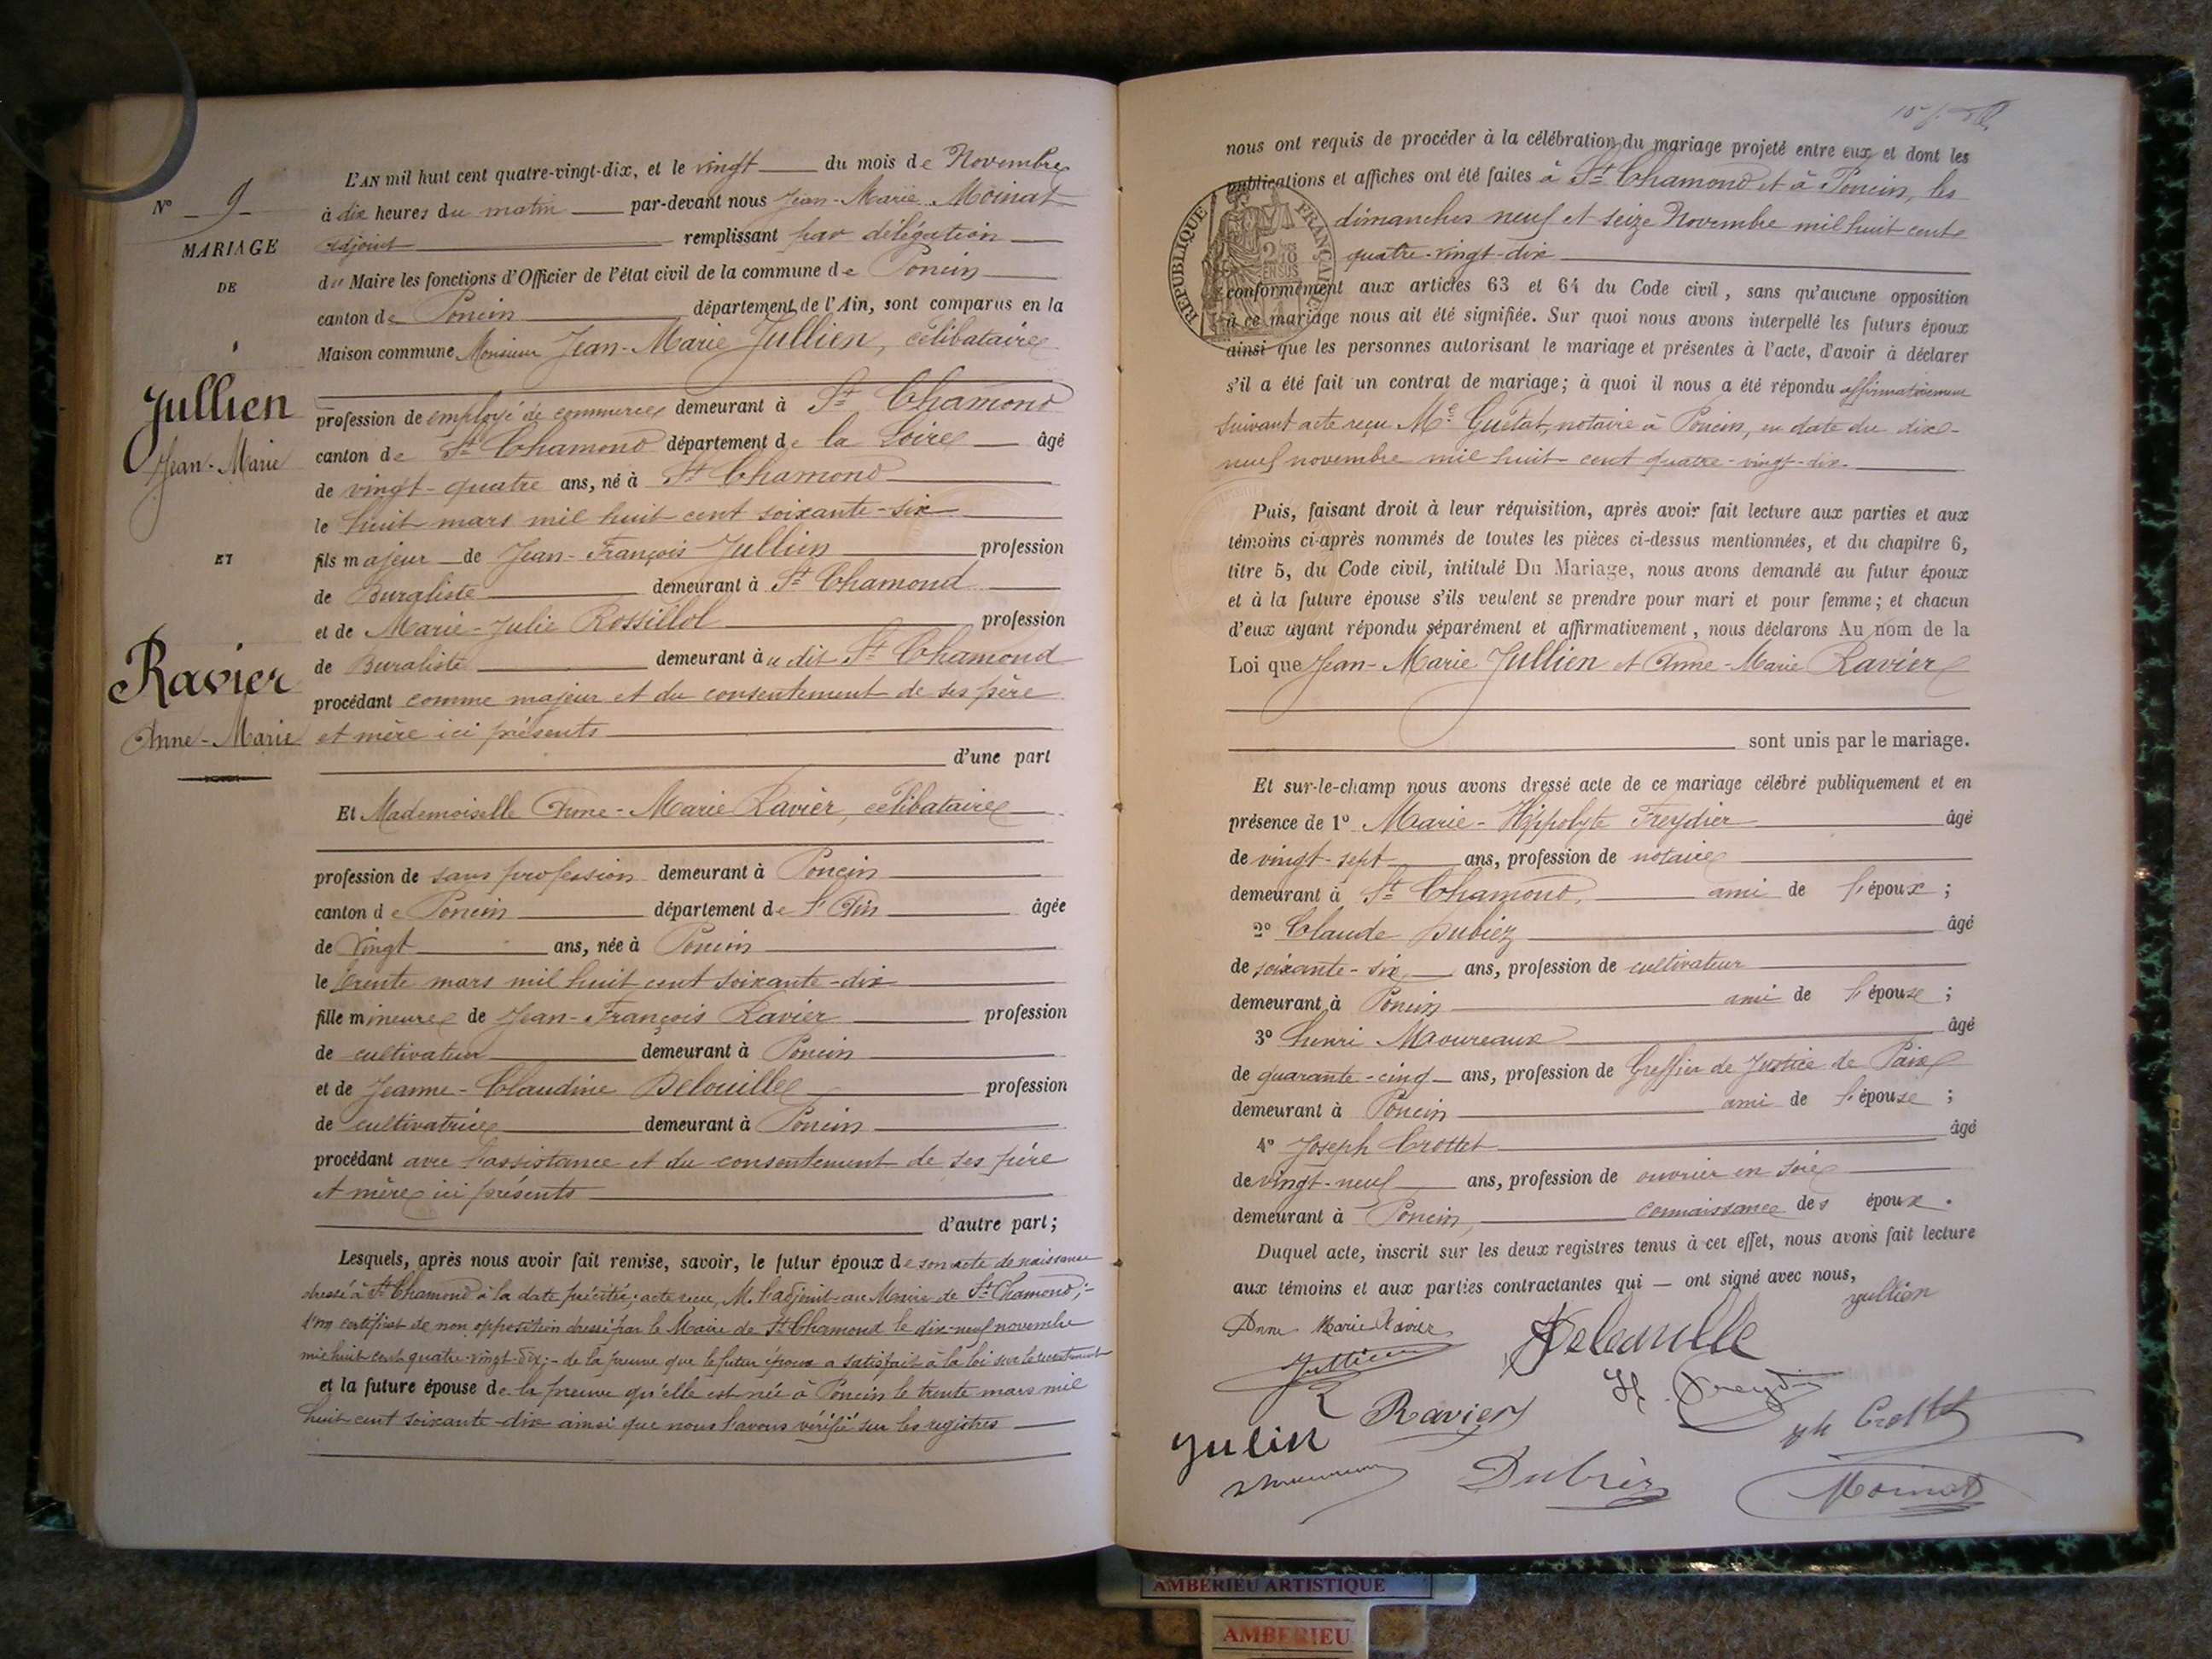 N° 9
MARIAGE
DE
Jullien
Jean-Marie
ET
Ravier
Anne-Marie
L'AN mil huit cent quatre-vingt-dix, et le vingt du mois de Novembre
à dix heures du matin par-devant nous Jean-Marie Moinat
adjoint remplissant par délégation
du Maire les fonctions d'Officier de l'état civil de la commune de Poncin
canton de Poncin département de l'Ain, sont comparus en la
Maison commune Monsieur Jean-Marie Jullien, célibataire
profession de employé de commerce demeurant à St Chamond
canton de St Chamond département de la Loire âgé
de vingt-quatre ans, né à St Chamond
le huit mars mil huit cent soixante-six
fils majeur de Jean-François Jullien profession
de Buraliste demeurant à St Chamond
et de Marie-Julie Rossillol profession
de Buraliste demeurant à u dit St Chamond
procédant comme majeur et du consentement de ses père
et mère ici présents
d'une part
Et Mademoiselle Anne-Marie Ravier, célibataire
profession de sans profession demeurant à Poncin
canton de Poncin département de l'Ain âgée
de vingt ans, née à Poncin
le trente mars mil huit cent soixante-dix
fille mineure de Jean-François Ravier profession
de cultivateur demeurant à Poncin
et de Jeanne-Claudine Delouille profession
de cultivatrice demeurant à Poncin
procédant avec l'assistance et du consentement de ses père
et mère ici présents
d'autre part;
Lesquels, après nous avoir fait remise, savoir, le futur époux de son acte de naissance
dressé à St Chamond à la date précitée; acte reçu, M. l'adjoint au Maire de St Chamond;-
d'un certificat de non opposition dressé par le Maire de St Chamond le dix-neuf novembre
mil huit cent quatre-vingt-dix;- de la preuve que le futur époux a satisfait à la loi sur le recrutement
et la future épouse de la preuve qu'elle est née à Poncin le trente mars mil
huit cent soixante-dix ainsi que nous l'avons vérifié sur les registres
nous ont requis de procéder à la célébration du mariage projeté entre eux et dont les
publications et affiches ont été faites à St Chamond et à Poncin, les
dimanches neuf et seize Novembre mil huit cent
quatre-vingt-dix
REPUBLIQUE FRANÇAISE
conformément aux articles 63 et 64 du Code civil, sans qu'aucune opposition
à ce mariage nous ait été signifiée. Sur quoi nous avons interpellé les futurs époux
ainsi que les personnes autorisant le mariage et présentes à l'acte, d'avoir à déclarer
s'il a été fait un contrat de mariage; à quoi il nous a été répondu affirmativement
suivant acte reçu Me Guétat, notaire à Poncin, en date du dix-
neuf novembre mil huit cent quatre-vingt-dix.
Puis, faisant droit à leur réquisition, après avoir fait lecture aux parties et aux
témoins ci-après nommés de toutes les pièces ci-dessus mentionnées, et du chapitre 6,
titre 5, du Code civil, intitulé Du Mariage, nous avons demandé au futur époux
et à la future épouse s'ils veulent se prendre pour mari et pour femme; et chacun
d'eux ayant répondu séparément et affirmativement, nous déclarons Au nom de la
Loi que Jean-Marie Jullien et Anne-Marie Ravier
sont unis par le mariage.
Et sur-le-champ nous avons dressé acte de ce mariage célébré publiquement et en
présence de 1° Marie-Hippolyte Freydier âgé
de vingt-sept ans, profession de notaire
demeurant à St Chamond, ami de l'époux;
2° Claude Dubiez âgé
de soixante-six ans, profession de cultivateur
demeurant à Poncin ami de l'épouse;
3° Henri Maoureaux âgé
de quarante-cinq ans, profession de Greffier de Justice de Paix
demeurant à Poncin ami de l'épouse;
4° Joseph Crottet âgé
de vingt-neuf ans, profession de ouvrier en soie
demeurant à Poncin, connaissance des époux.
Duquel acte, inscrit sur les deux registres tenus à cet effet, nous avons fait lecture
aux témoins et aux parties contractantes qui — ont signé avec nous,
Jullien
Anne Marie Ravier
Delouille
Jullien
H. Freydier
Ravier
Jph Crottet
Julin
Dubiez
Moinat
AMBERIEU ARTISTIQUE
AMBERIEU